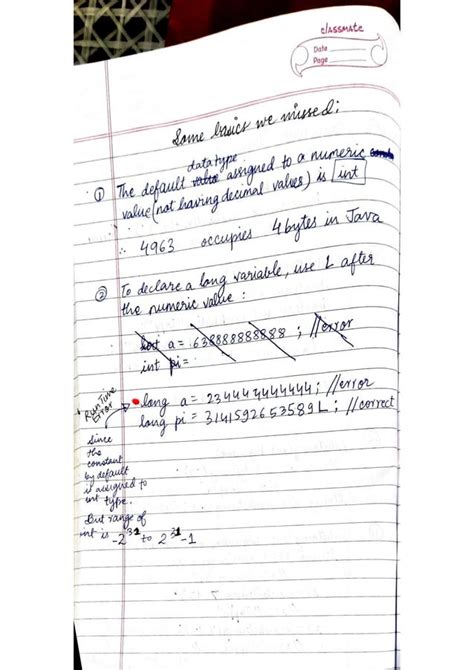 classmate
Date
Page
Some basics we missed:
datatype
① The default value assigned to a numeric
value (not having decimal values) is int
∴ 4963 occupies 4 bytes in Java
② To declare a long variable, use L after
the numeric value :
int a = 638888888888 ; //error
int pi =
long a = 234444444444; //error
long pi = 3141592653589L; //correct
Run Time
Error
Since
the
constant
by default
is assigned to
int type.
But range of
int is -2^31 to 2^31-1